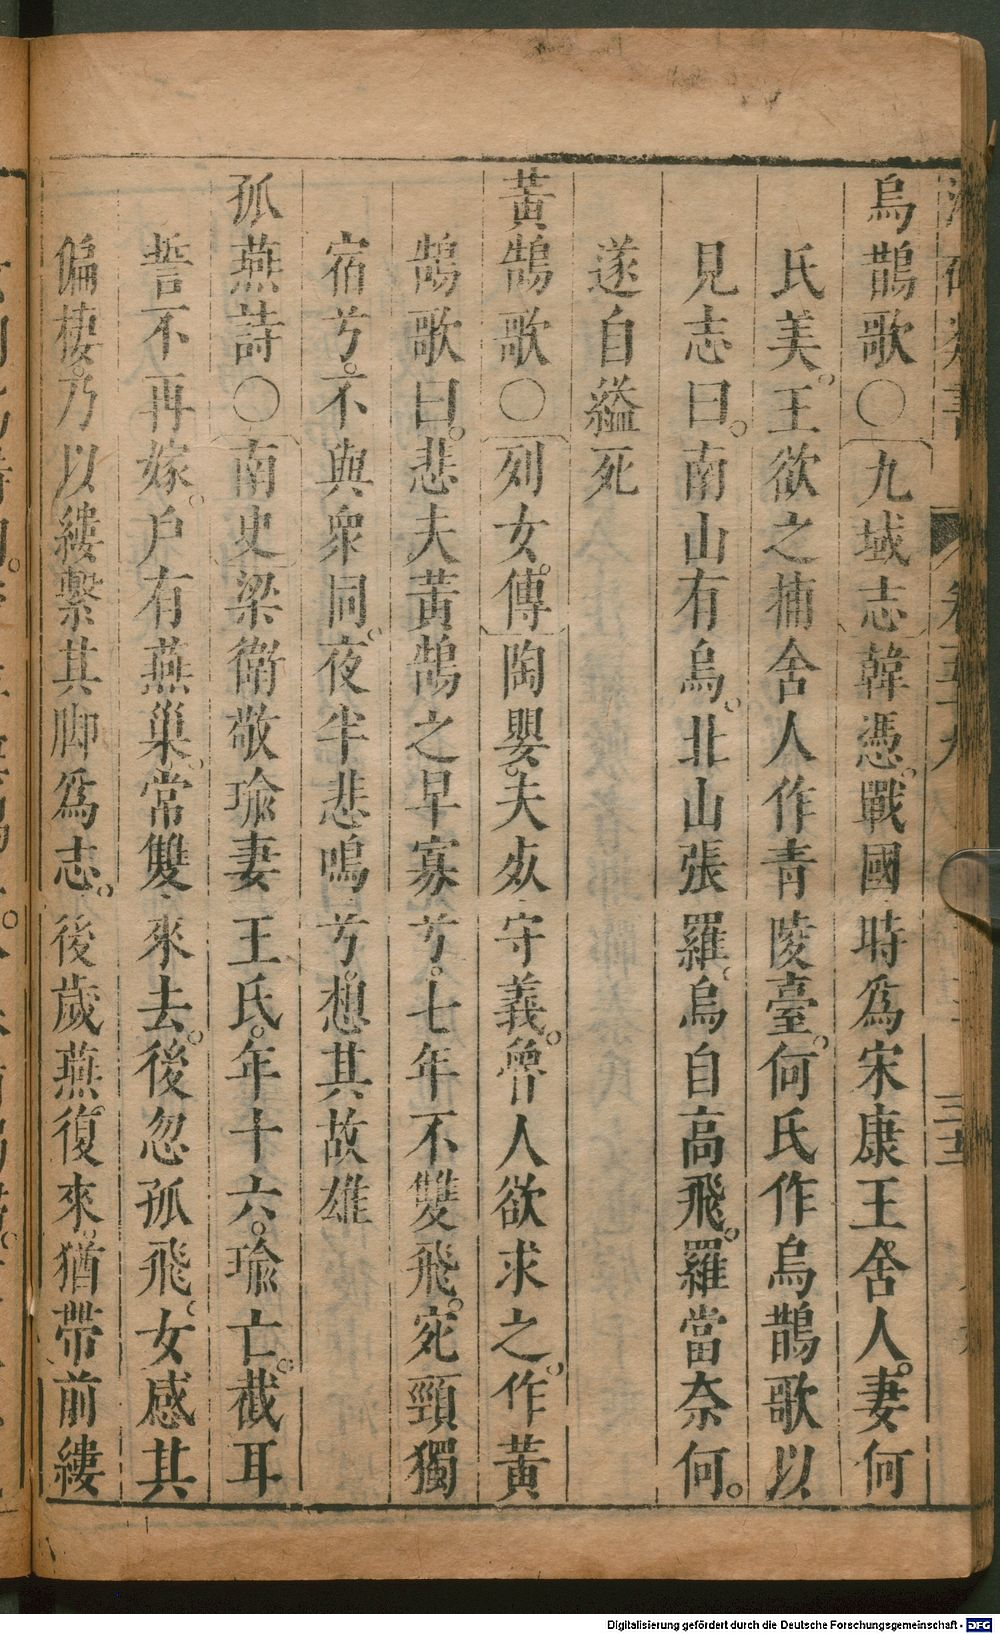 烏鵲歌〇九域志韓憑戰國時爲宋康王舍人妻何
氏美王欲之捕舍人作青陵臺何氏作烏鵲歌以
見志曰南山有烏北山張羅烏自高飛羅當奈何
遂自縊死
黃鵠歌〇列女傳陶嬰夫死守義魯人欲求之作黃
鵠歌曰悲夫黃鵠之早寡兮七年不雙飛宛頸獨
宿兮不與衆同夜半悲鳴兮想其故雄
孤燕詩〇南史梁衛敬瑜妻王氏年十六瑜亡截耳
誓不再嫁戶有燕巢常雙來去後忽孤飛女感其
偏棲乃以縷繫其脚爲志後歲燕復來猶帶前縷
Digitalisierung gefördert durch die Deutsche Forschungsgemeinschaft - DFG